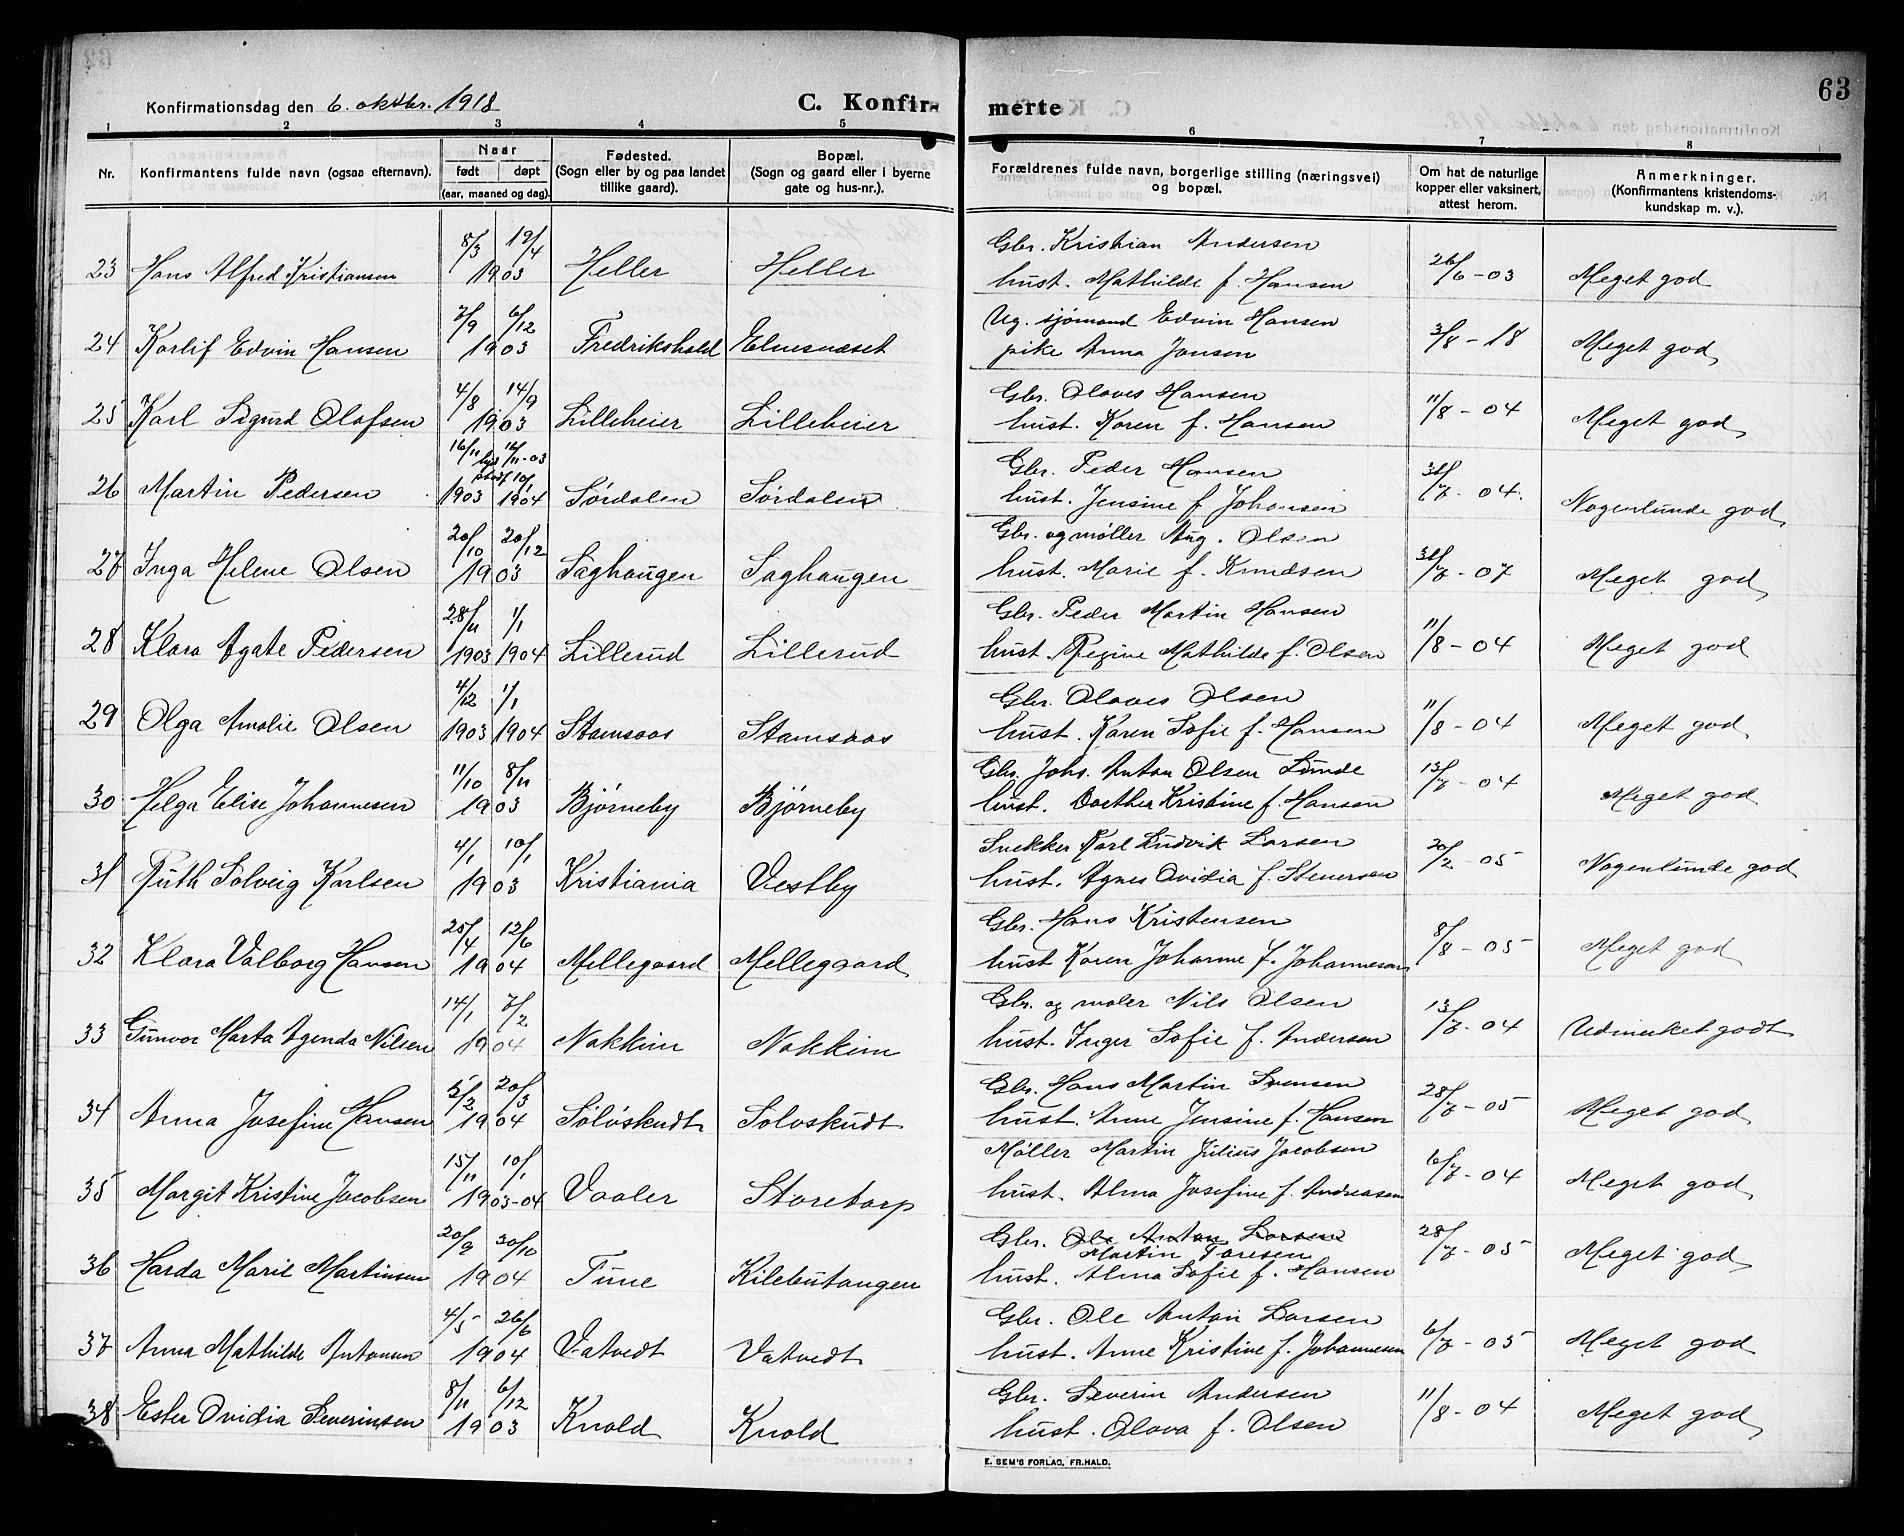 63
Konfirmationsdag den 6. oktbr. 1918
C. Konfirmerte
1 2 3 4 5 6 7 8
Nr. Konfirmantens fulde navn (ogsaa efternavn). Naar født døpt (aar, maaned og dag). Fødested. (Sogn eller by og paa landet tillike gaard). Bopæl. (Sogn og gaard eller i byerne gate og hus-nr.). Forældrenes fulde navn, borgerlige stilling (næringsvei) og bopæl. Om hat de naturlige kopper eller vaksinert, attest herom. Anmerkninger. (Konfirmantens kristendoms-kundskap m. v.).
23 Hans Alfred Kristiansen 8/3 19/4 1903 Heller Heller Gbr. Kristian Andersen
hust. Mathilde f. Hansen 26/6-03 Meget god
24 Karlif Edvin Hansen 7/9 6/12 1903 Fredrikshald Elnesnæset Ug. sjømand Edvin Hansen
pike Anna Jansen 3/8-18 Meget god
25 Karl Sigurd Olafsen 4/8 14/9 1903 Lilleheier Lilleheier Gbr. Olaves Hansen
hust. Karen f. Hansen 11/8-04 Meget god
26 Martin Pedersen 16/11 1903 hjd 16/11-03 stadf 10/1 1904 Sørdalen Sørdalen Gbr. Peder Hansen
hust. Jensine f Johansen 31/7-04. Nogenlunde god
27 Inga Helene Olsen 20/10 20/12 1903 Saghaugen Saghaugen Gbr. og møller Aug. Olsen
hust. Marie f. Knudsen 31/7-07 Meget god
28 Klara Agate Pedersen 28/11 1903 1/1 1904 Lillerud Lillerud Gbr. Peder Martin Hansen
hust. Regine Mathilde f. Olsen 11/8-04 Meget god
29 Olga Amalie Olsen 4/12 1903 1/1 1904 Stamsaas Stamsaas Gbr. Olaves Olsen
hust. Karen Sofie f. Hansen 11/8-04 Meget god
30 Helga Elise Johannesen 11/10 8/11 1903 Bjørneby Bjørneby Gbr. Johs. Anton Olsen Lunde
hust. Dorthea Kristine f. Hansen 13/7-04 Meget god
31 Ruth Solveig Karlsen 4/1 10/1 1903 Kristiania Vestby Snekker Karl Ludvik Larsen
hust. Agnes Ovidia f. Stenersen 20/2-05 Nogenlunde god
32 Klara Valborg Hansen 25/4 12/6 1904 Mellegaard Mellegaard Gbr. Hans Kristensen
hust Karen Johanne f. Johannesen 8/8-05 Meget god
33 Gunvor Marta Agenda Nilsen 14/1 7/2 1904 Nakkim Nakkim Gbr. og maler Nils Olsen
hust. Inger Sofie f. Andersen 13/7-04 Udmerket godt
34 Anna Josefine Hansen 5/2 20/3 1904 Søløskudt Soloskudt Gbr. Hans Martin Svensen
hust. Anne Jensine f. Hansen 28/7-05 Meget god
35 Margit Kristine Jacobsen 15/11 10/1 1903-04 Vaaler Storetorp Møller Martin Julius Jacobsen
hust. Alma Josefine f. Andreasen 6/7-04 Meget god
36 Harda Marie Martinsen 20/9 30/10 1904 Tune Kilebutangen Gbr. Ole Anton Larsen
Martin Toresen
hust. Alma Sofie f. Hansen 28/7-05 Meget god
37 Anna Mathilde Antonsen 4/5 26/6 1904 Vatvedt Vatvedt Gbr. Ole Anton Larsen
hust. Anne Kristine f. Johannesen 6/7-05 Meget god
38 Ester Ovidia Severinsen 8/11 6/12 1903 Knold Knold Gbr. Severin Andersen
hust. Olava f. Olsen 11/8-04 Meget god
E. SEM'S FORLAG, FR.HALD.